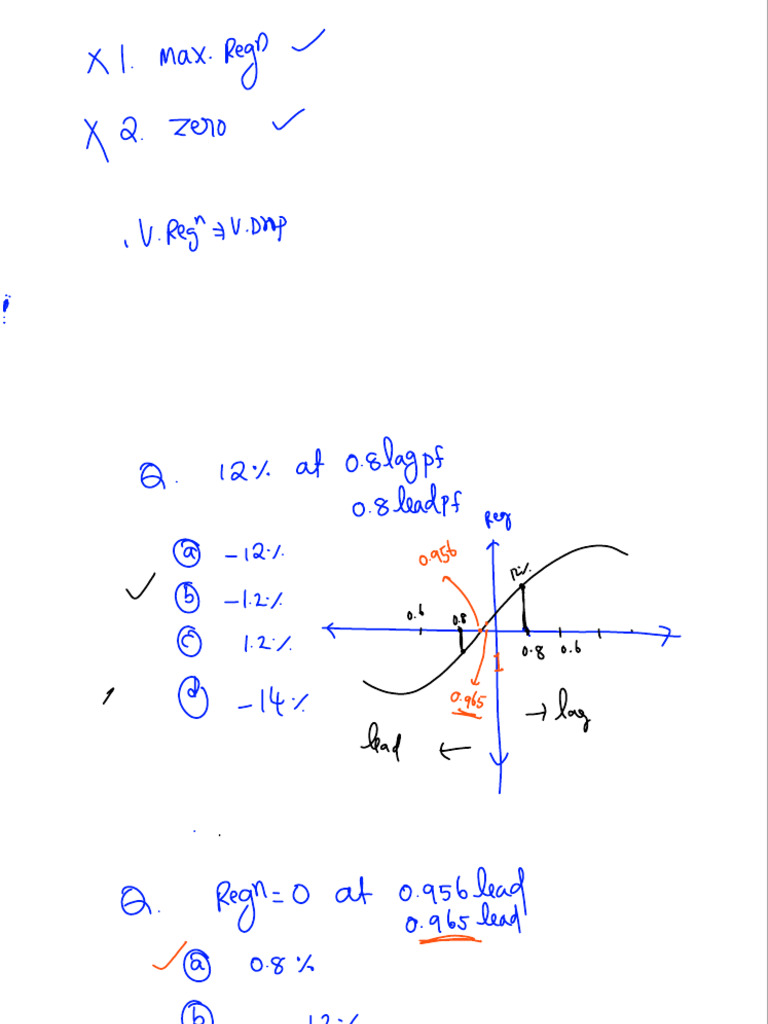 X 1. Max. Regn ✓
X 2. Zero ✓
V. Regn ⇒ V. Drop
Q. 12% at 0.8 lag pf
0.8 lead pf
Reg
ⓐ -12%
0.956
12%
✓ ⓑ -1.2%
0.6
0.8
ⓒ 1.2%
0.8 0.6
ⓓ -14%
0.965
→ lag
lead ←
Q. Regn = 0 at 0.956 lead
0.965 lead
✓ ⓐ 0.8%
ⓑ